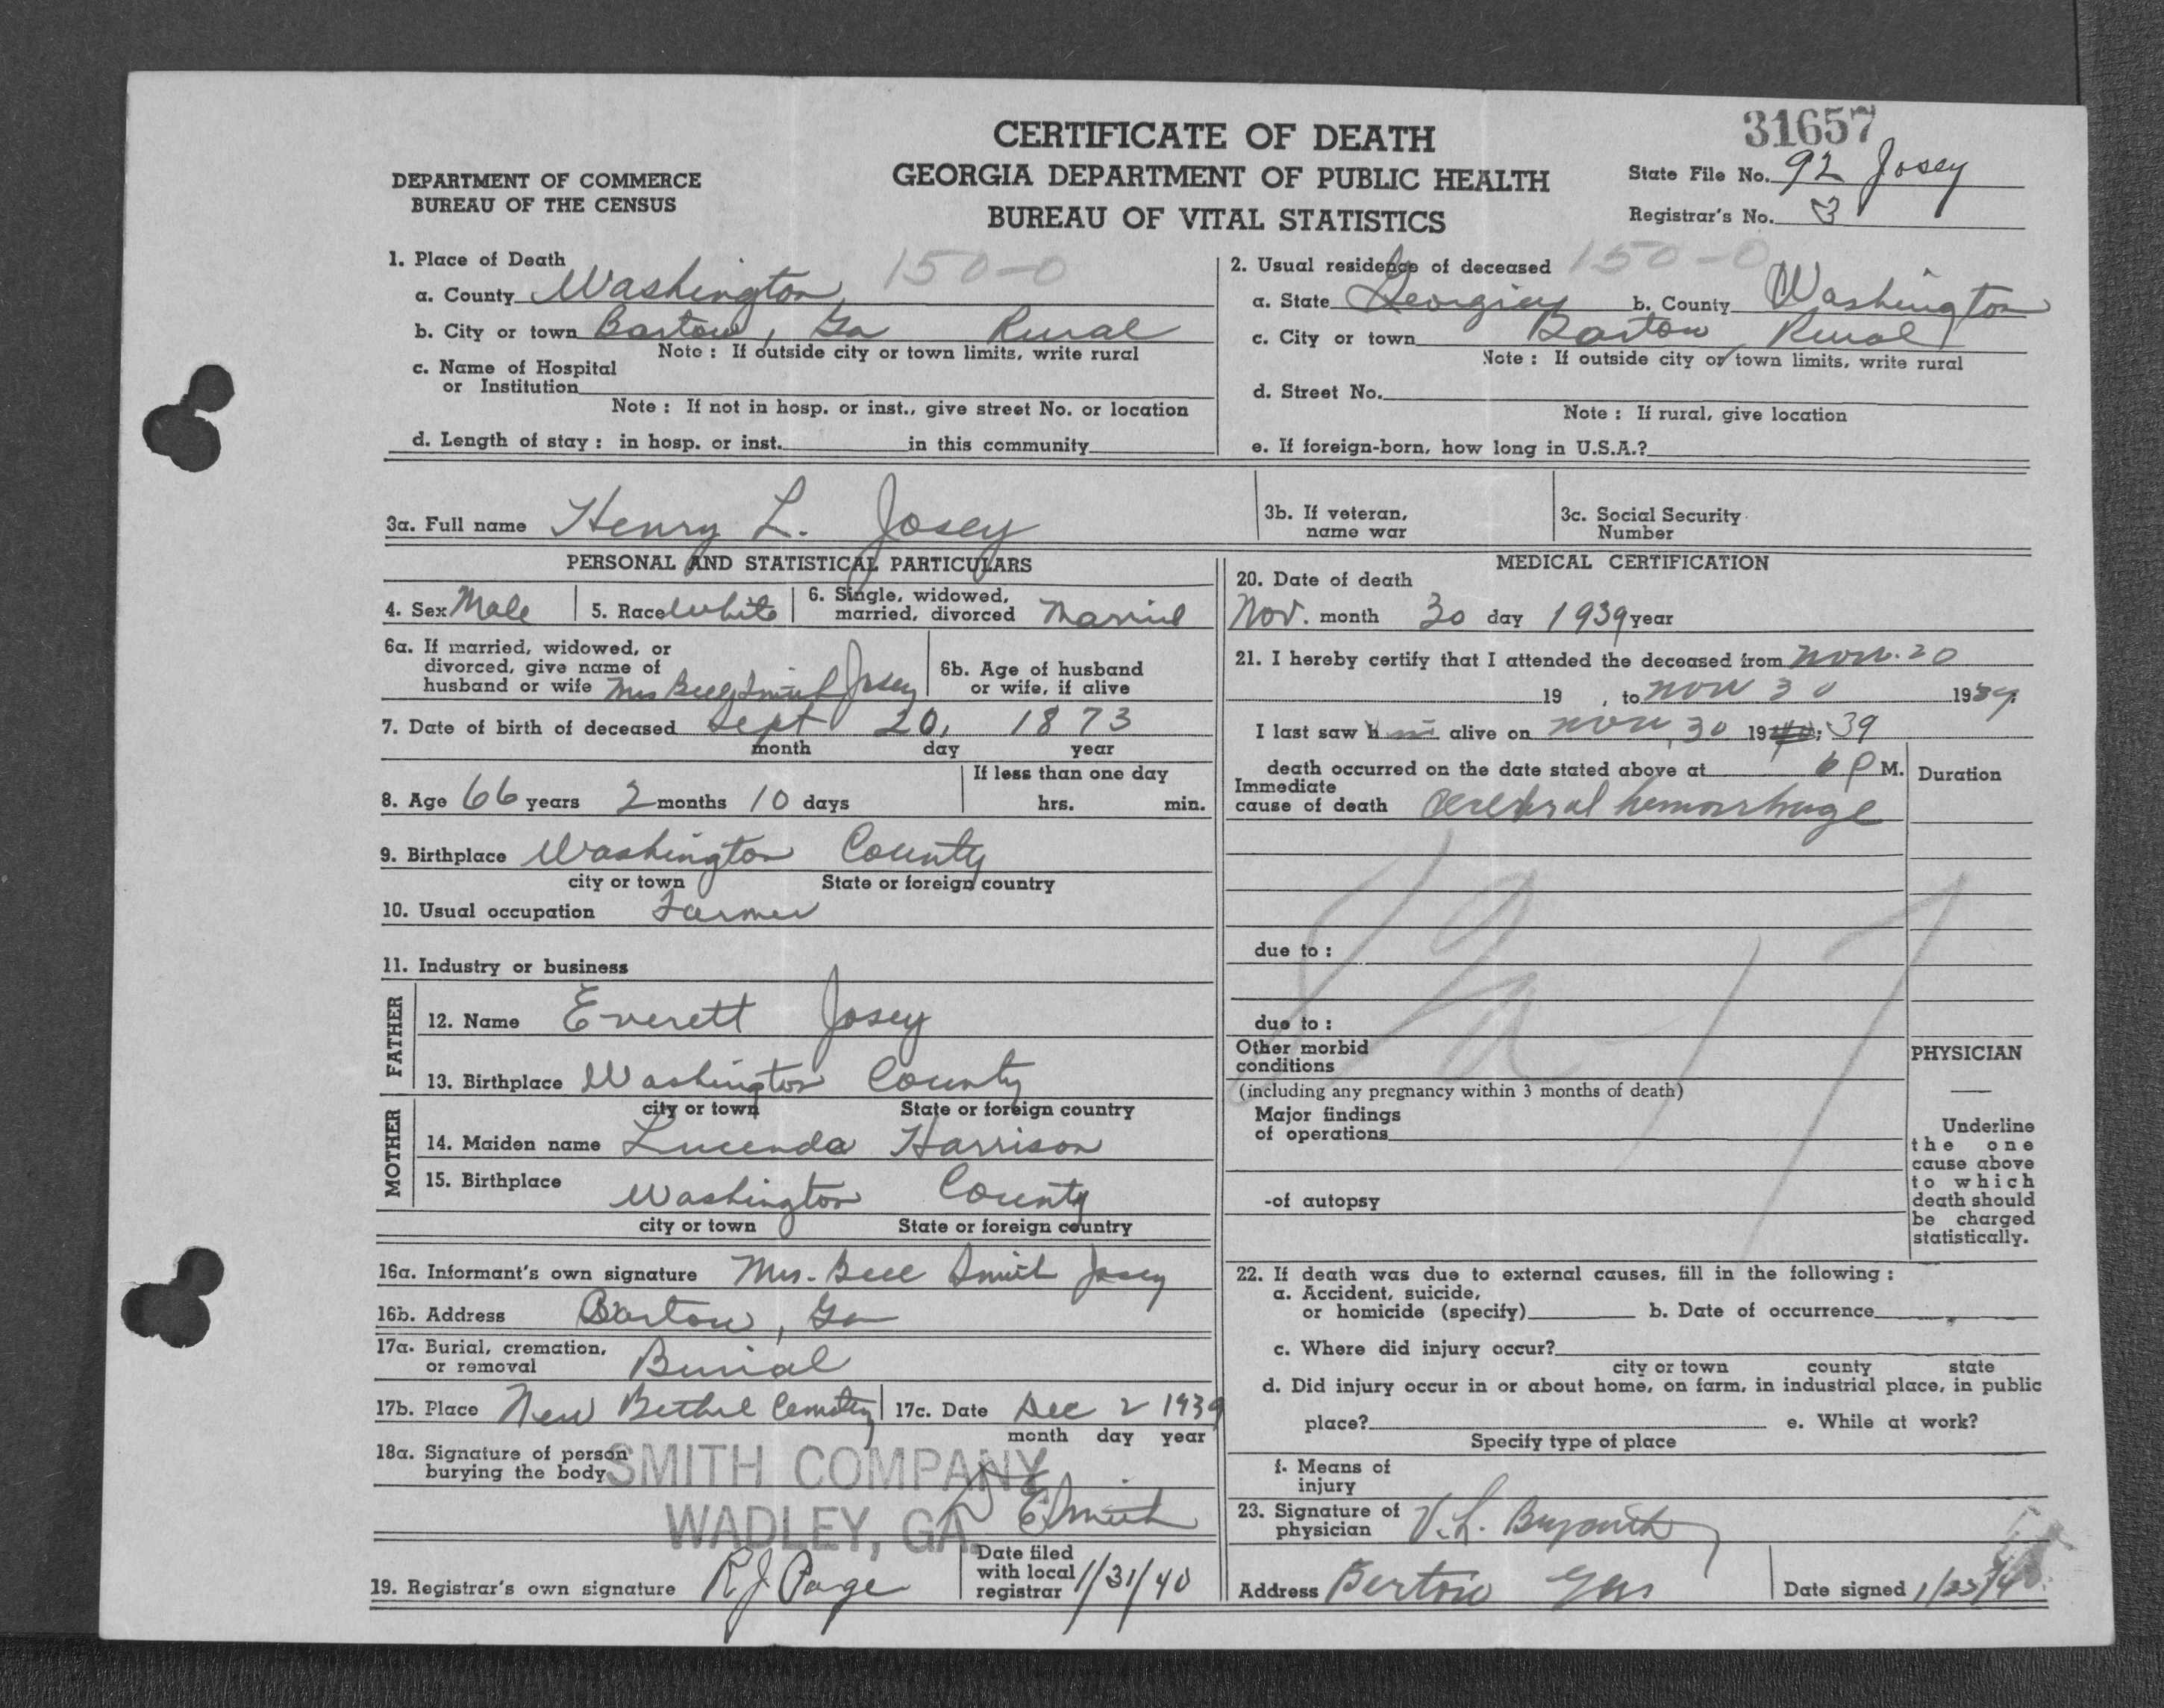 31657
CERTIFICATE OF DEATH
GEORGIA DEPARTMENT OF PUBLIC HEALTH
BUREAU OF VITAL STATISTICS
DEPARTMENT OF COMMERCE
BUREAU OF THE CENSUS
State File No. 92 Josey
Registrar's No. 3
1. Place of Death 150-0
a. County Washington,
b. City or town Bartow, Ga Rural
Note: If outside city or town limits, write rural
c. Name of Hospital
or Institution
Note: If not in hosp. or inst., give street No. or location
d. Length of stay: in hosp. or inst. in this community
2. Usual residence of deceased 150-0
a. State Georgia b. County Washington
c. City or town Bartow, Rural
Note: If outside city or town limits, write rural
d. Street No.
Note: If rural, give location
e. If foreign-born, how long in U.S.A.?
3a. Full name Henry L. Josey
3b. If veteran,
name war
3c. Social Security
Number
PERSONAL AND STATISTICAL PARTICULARS
4. Sex Male 5. Race White 6. Single, widowed,
married, divorced Married
6a. If married, widowed, or
divorced, give name of
husband or wife Mrs Bell Smith Josey
6b. Age of husband
or wife, if alive
7. Date of birth of deceased Sept 20, 1873
month day year
8. Age 66 years 2 months 10 days
If less than one day
hrs. min.
9. Birthplace Washington County
city or town State or foreign country
10. Usual occupation Farmer
11. Industry or business
FATHER
12. Name Everett Josey
13. Birthplace Washington County
city or town State or foreign country
MOTHER
14. Maiden name Lucenda Harrison
15. Birthplace Washington County
city or town State or foreign country
16a. Informant's own signature Mrs. Bell Smith Josey
16b. Address Bartow, Ga
17a. Burial, cremation,
or removal Burial
17b. Place New Bethel Cemetery 17c. Date Dec 2 1939
month day year
18a. Signature of person
burying the body SMITH COMPANY
WADLEY, GA.
E Smith
19. Registrar's own signature R J Page
Date filed
with local
registrar 1/31/40
MEDICAL CERTIFICATION
20. Date of death
Nov. month 30 day 1939 year
21. I hereby certify that I attended the deceased from Nov. 20
19 , to Nov 30 1939.
I last saw him alive on Nov, 30 19 ; 39
death occurred on the date stated above at 6 P M.
Duration
Immediate
cause of death Cerebral hemorrhage
due to:
due to:
Other morbid
conditions
(including any pregnancy within 3 months of death)
Major findings
of operations
-of autopsy
PHYSICIAN
Underline
the one
cause above
to which
death should
be charged
statistically.
22. If death was due to external causes, fill in the following:
a. Accident, suicide,
or homicide (specify) b. Date of occurrence
c. Where did injury occur?
city or town county state
d. Did injury occur in or about home, on farm, in industrial place, in public
place? e. While at work?
Specify type of place
f. Means of
injury
23. Signature of
physician V. L.
Address Bertow Ga
Date signed 1/23/40